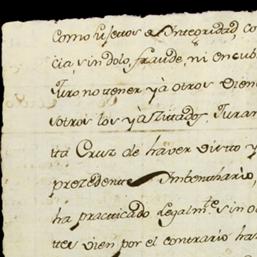 Como sugetos de Integridad, co
cia, sin dolo, fraude, ni encub
Juro no tener ya otros vien
sotros los ya zitados, Juram
ta Cruz de haver dicho y
prezedente Imbenthario,
ha practicado Legalmte. sin o
tes vien por el contrario has